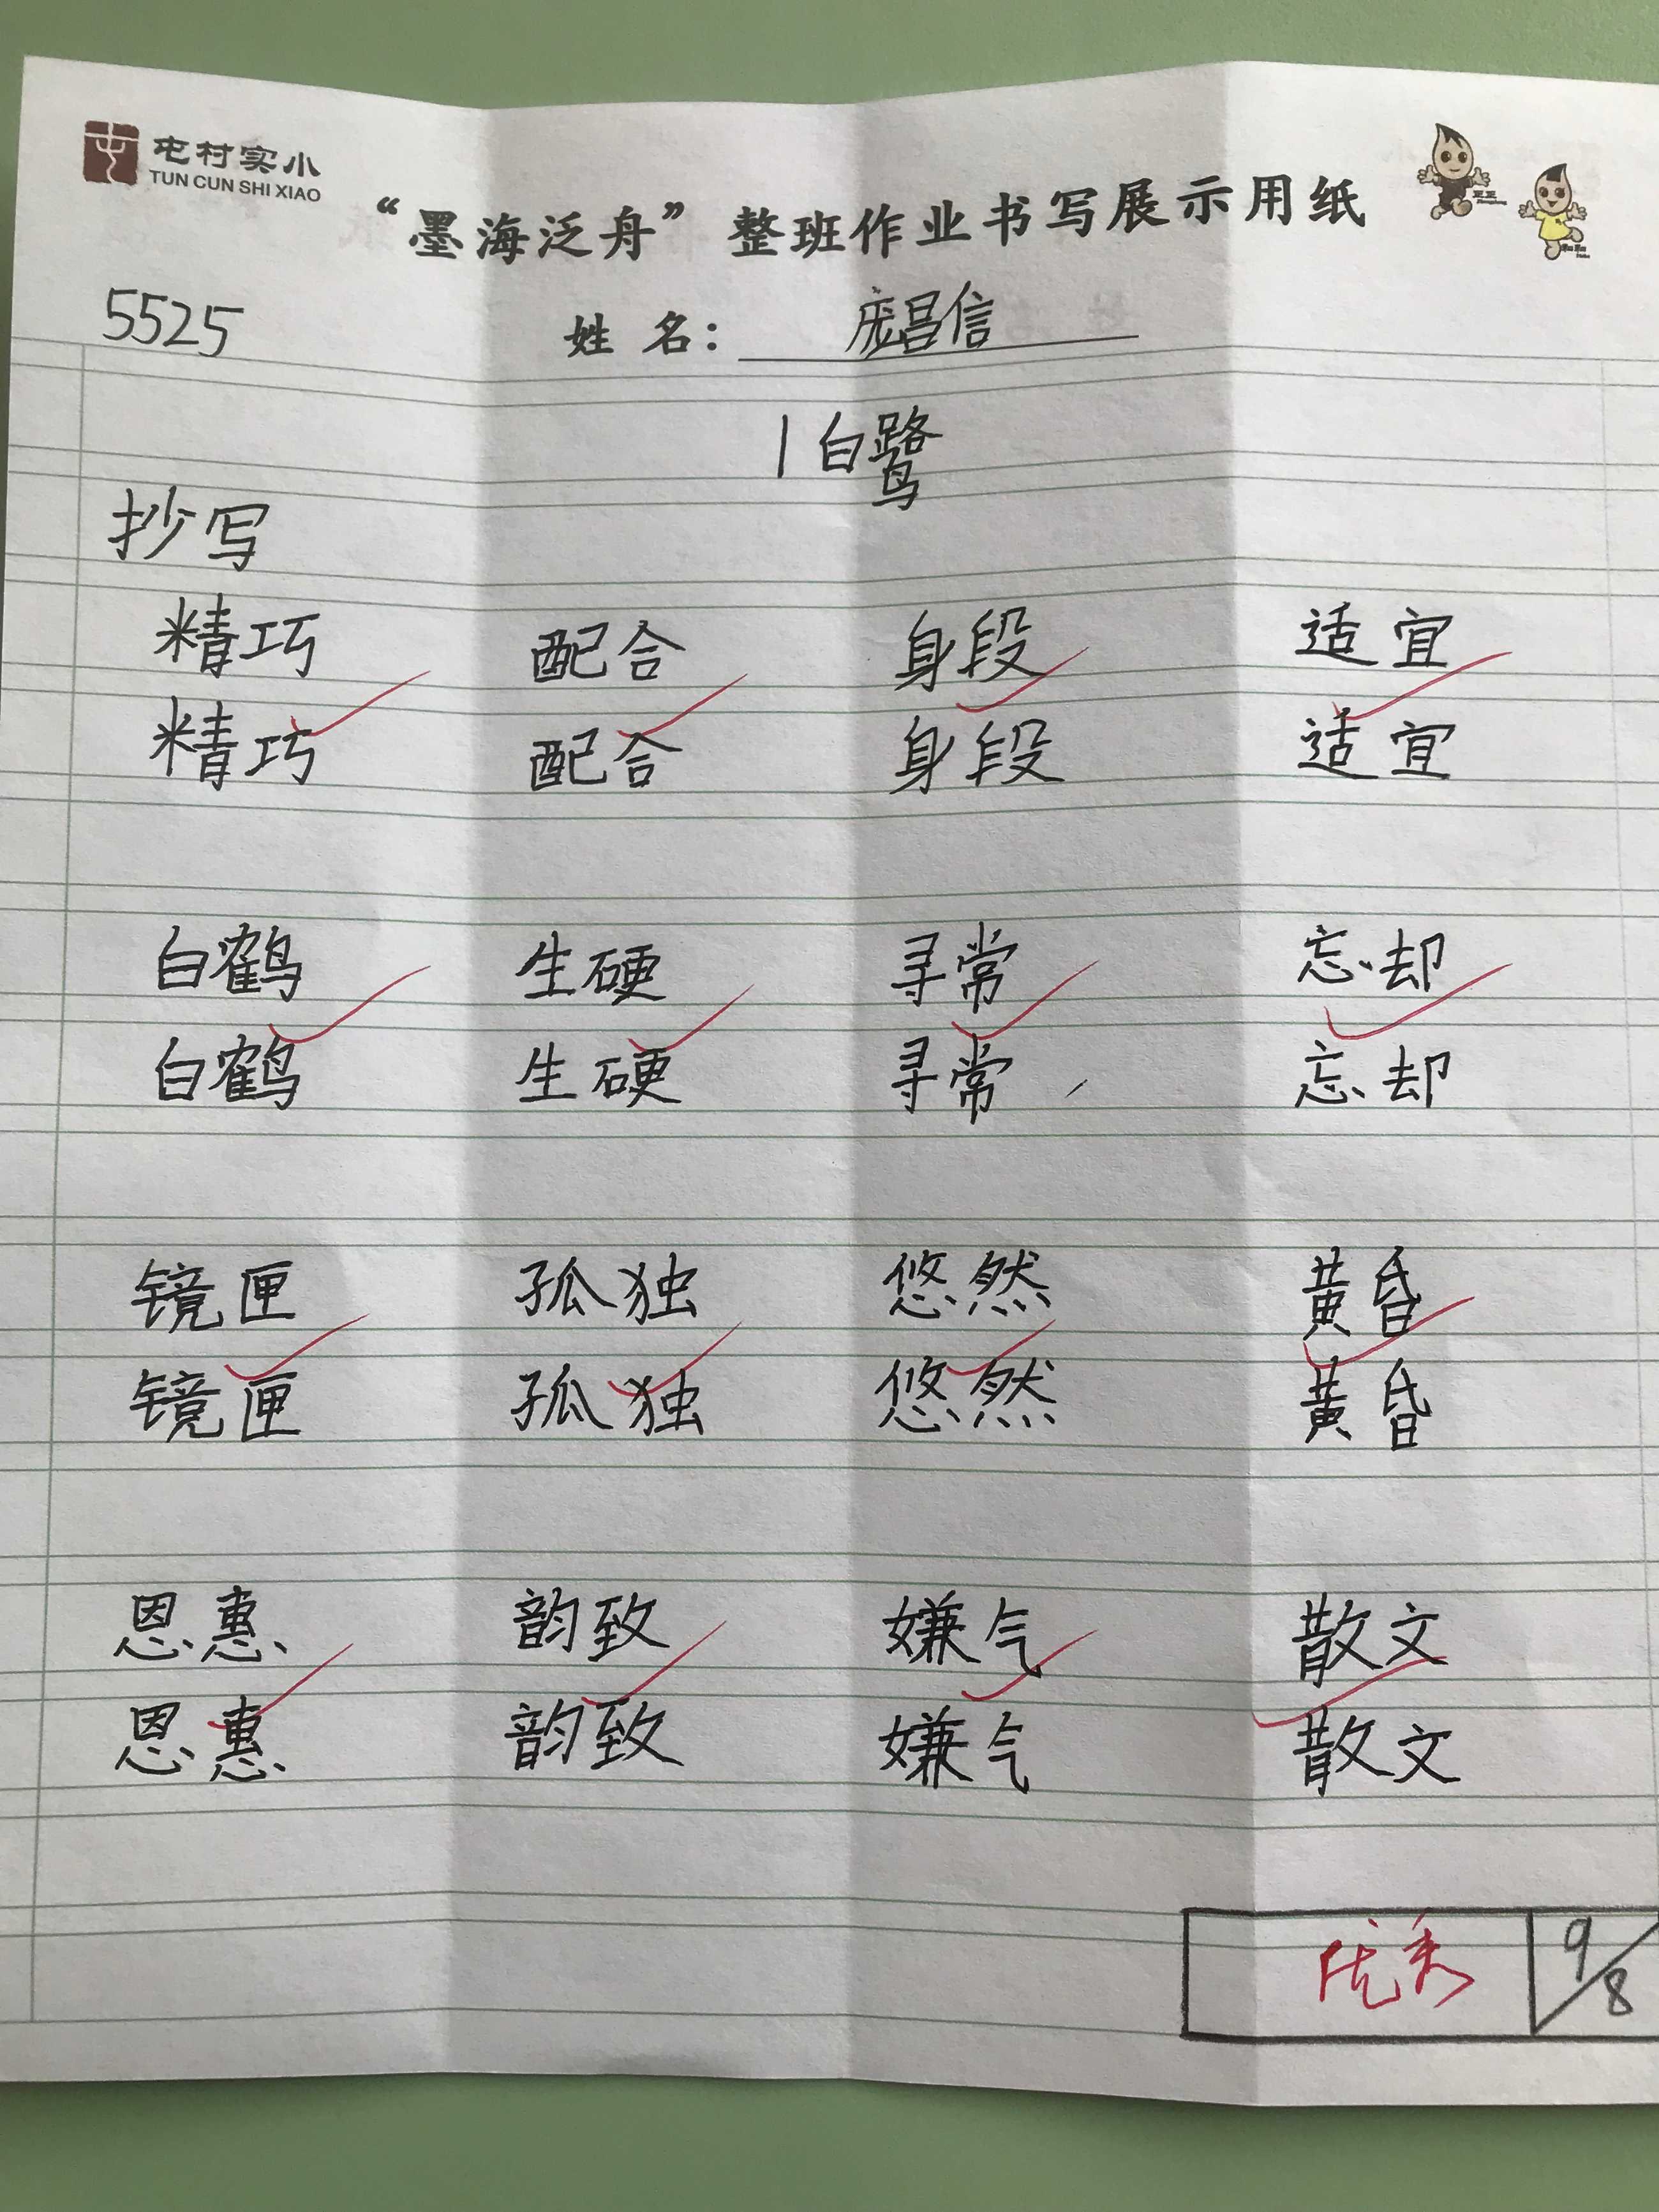 屯村实小
TUN CUN SHI XIAO
“墨海泛舟”整班作业书写展示用纸
5525 姓 名： 庞昌信
1 白鹭
抄写
精巧 配合 身段 适宜
精巧 配合 身段 适宜
白鹤 生硬 寻常 忘却
白鹤 生硬 寻常 忘却
镜匣 孤独 悠然 黄昏
镜匣 孤独 悠然 黄昏
恩惠 韵致 嫌气 散文
恩惠 韵致 嫌气 散文
优秀 9/8